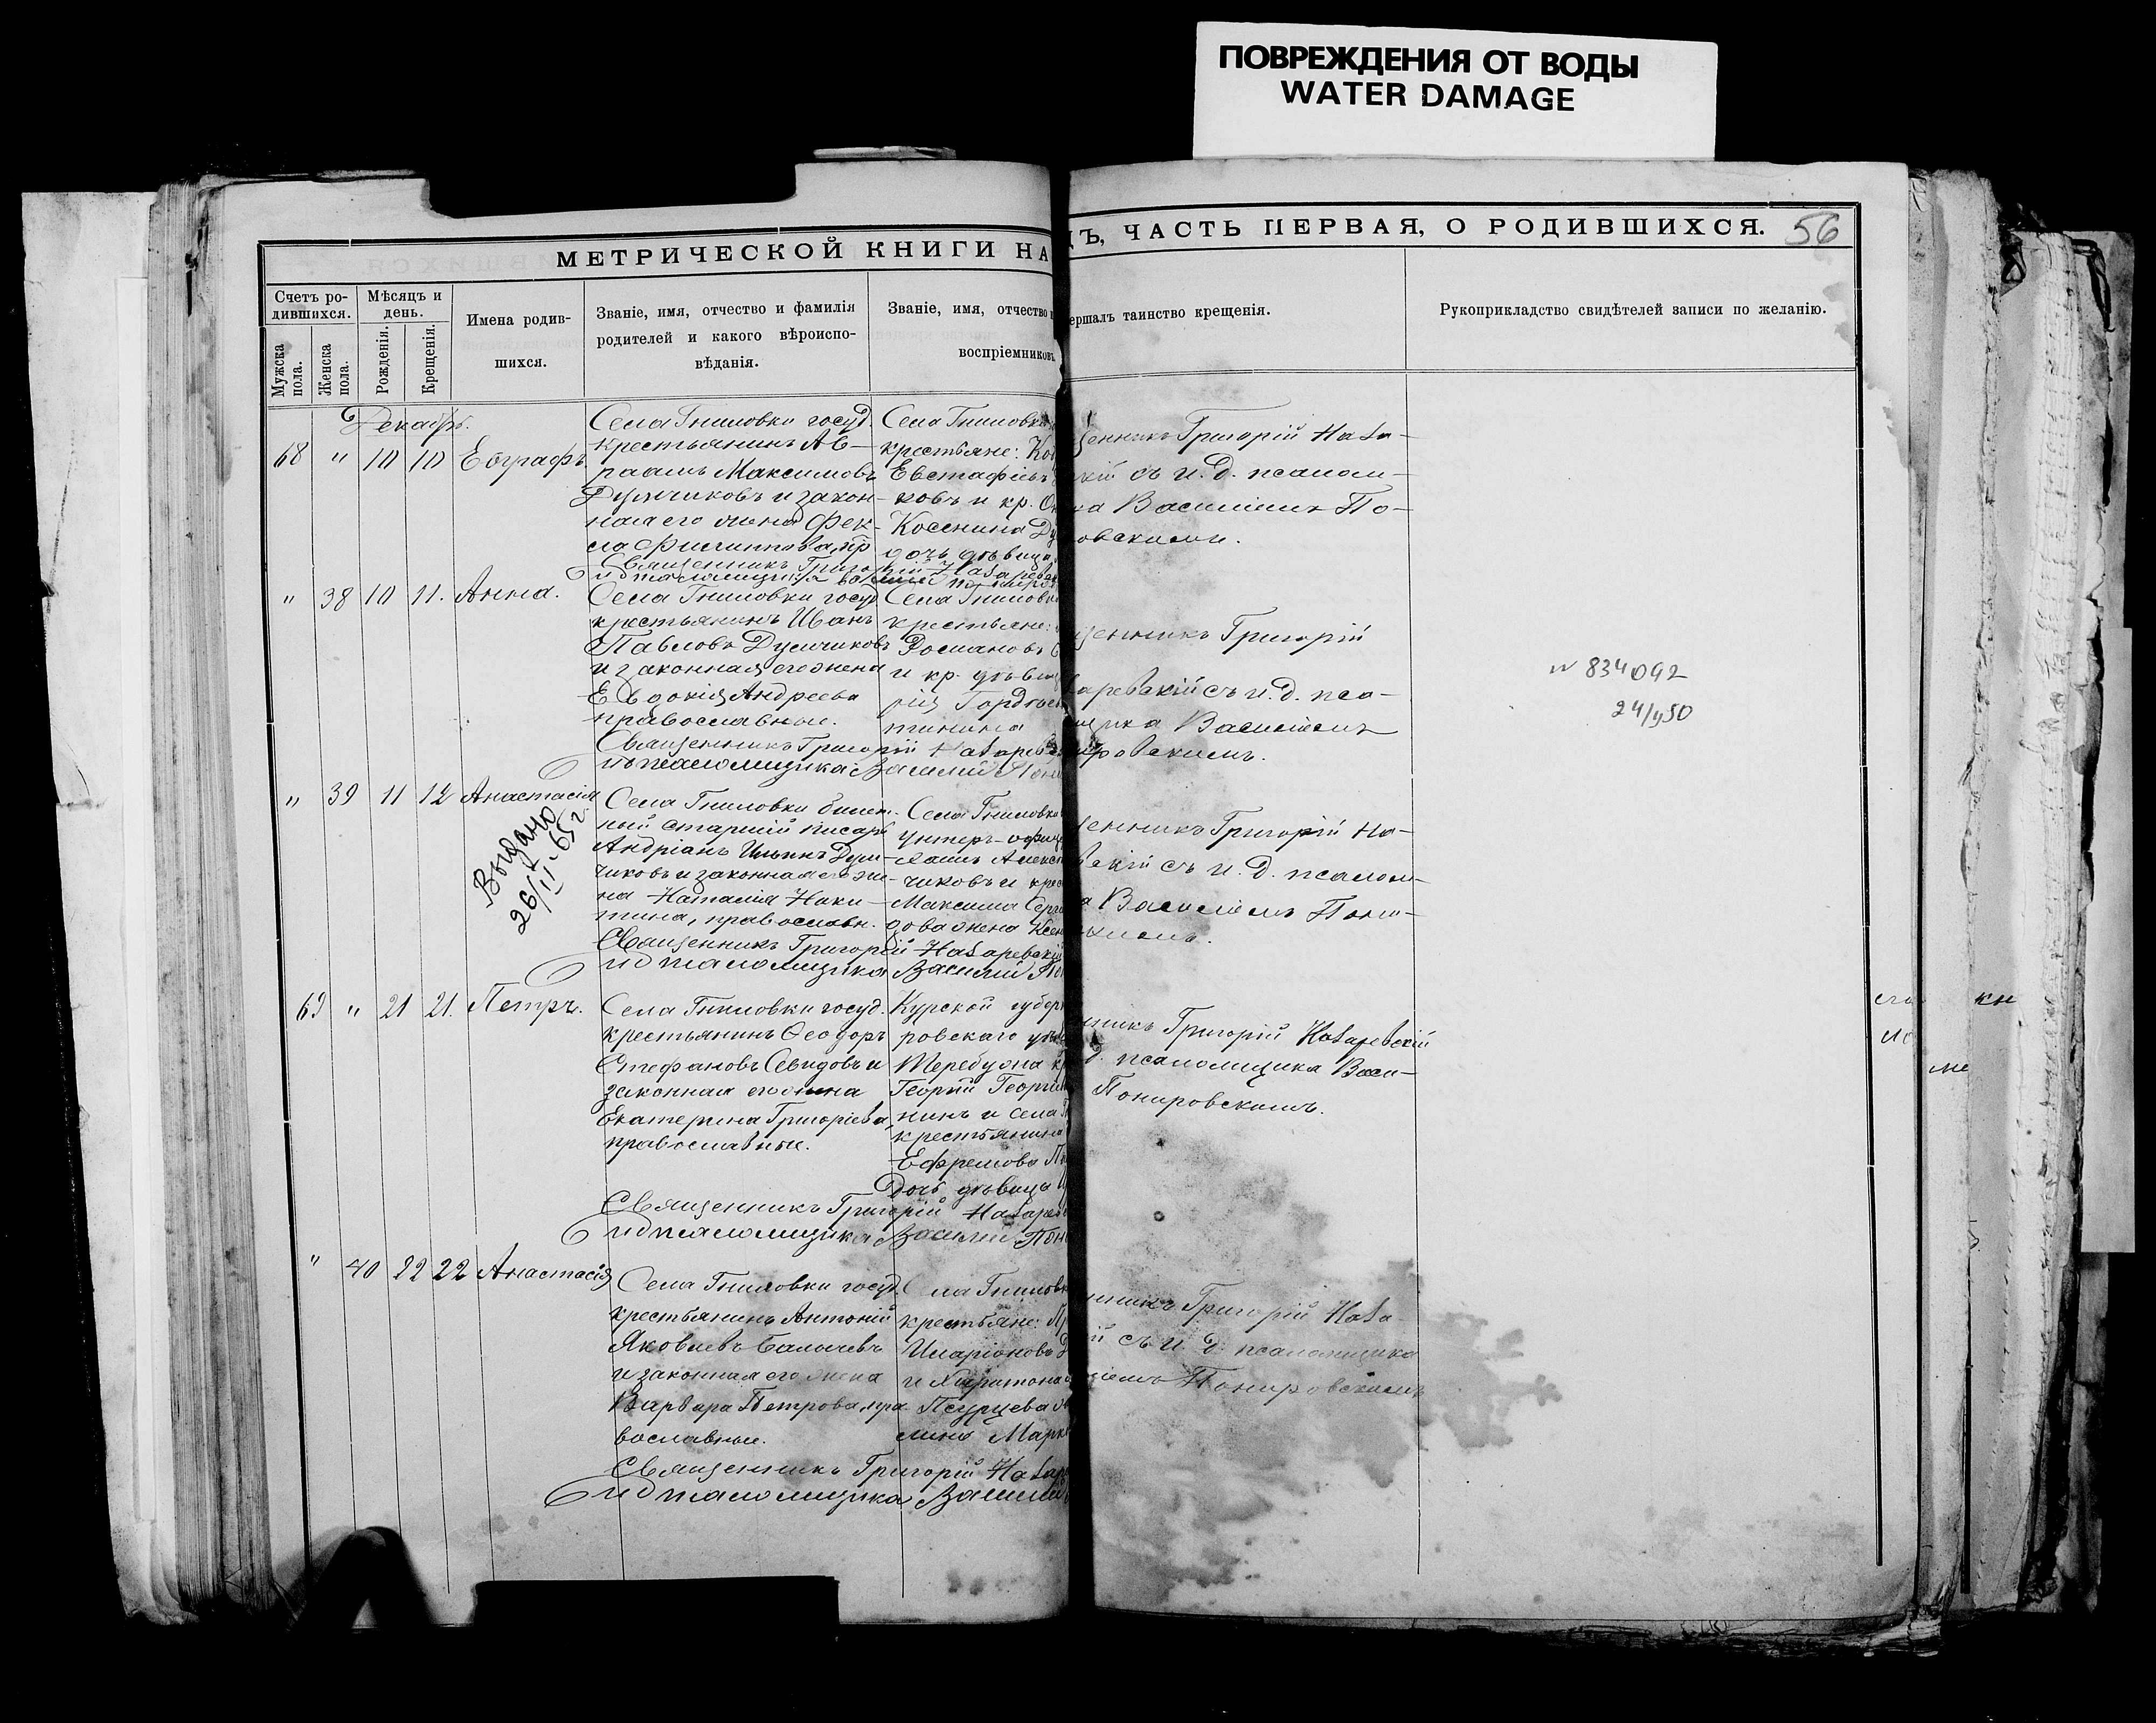 ПОВРЕЖДЕНИЯ ОТ ВОДЫ
WATER DAMAGE
МЕТРИЧЕСКОЙ КНИГИ НА
Ъ, ЧАСТЬ ПЕРВАЯ, О РОДИВШИХСЯ.
56
Счетъ ро-
дившихся.
Мужска
пола.
Женска
пола.
Мѣсяцъ и
день.
Рожденія.
Крещенія.
Имена родив-
шихся.
Званіе, имя, отчество и фамилія
родителей и какого вѣроиспо-
вѣданія.
Званіе, имя, отчество
воспріемниковъ
ершалъ таинство крещенія.
Рукоприкладство свидѣтелей записи по желанію.
Декабрь.
68 " 10 10 Евграфъ
Села Гниловки госуд.
крестьянинъ Ав-
раамъ Максимовъ
Думчиковъ и закон-
ная его жена Фек-
ла Филиппова, пр
Села Гниловки
крестьяне:
Евстафіевъ
ковъ и кр.
Косенкина
дочь дѣвица
Священникъ Григорій Назаревск
и д псаломщика
щенникъ Григорій Наза-
кій съ и. д. псалом-
ка Василіемъ По-
овскимъ.
" 38 10 11. Анна.
Села Гниловки госуд
крестьянинъ Иванъ
Павловъ Думчиковъ
и законная его жена
Евдокія Андреева
православные.
Села Гниловки
крестьяне:
Романовъ
и кр. дѣвица
рія Гордѣев
Священникъ Григорій Назаревс
и д псаломщика Василій Пони
щенникъ Григорій
заревскій съ и. д. пса-
щика Василіемъ
ировскимъ.
№ 834092
24/у50
" 39 11 12 Анастасія
Выдано
26/II-65 г.
Села Гниловки билет-
ный старшій писарь
Андріанъ Ильинъ Дум-
чиковъ и законная его же-
на Наталія Ники-
тина, православн.
Села Гниловки
унтеръ-офице
Алекс
чиковъ и крес
Максима Серг
дова жена Ксен
Священникъ Григорій Назаревскій
и д псаломщика Василій По
щенникъ Григорій На-
вскій съ и. д. псалом-
а Василіемъ Пони-
скимъ.
69 " 21 21. Петръ.
Села Гниловки госуд.
крестьянинъ Ѳеодоръ
Стефановъ Свидовъ и
законная его жена
Екатерина Григоріева,
православные.
Курской губерн
ровскаго уѣз
Теребужа кр
Георгій Георгіев
нинъ и села
крестьянина
Ефремова
дочь дѣвица
Священникъ Григорій Назарев
и д псаломщика Василій Пон
нникъ Григорій Назаревскій
д. псаломщика Васи-
Понировскимъ.
" 40 22 22 Анастасія
Села Гниловки госуд.
крестьянинъ Антоній
Яковлевъ Балычевъ
и законная его жена
Варвара Петрова, пра
вославные.
Села Гниловк
крестьяне:
Иларіоновъ
и Харитона
мина Марк
Священникъ Григорій Назар
и д псаломщика Василій
нникъ Григорій Наза
й съ и. д. псаломщика
ліемъ Понировскимъ